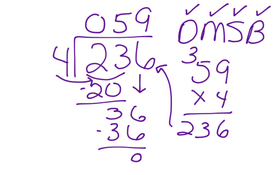 059
4 236
-20
36
-36
0
✓ ✓ ✓ ✓
DMSB
3
59
x 4
236